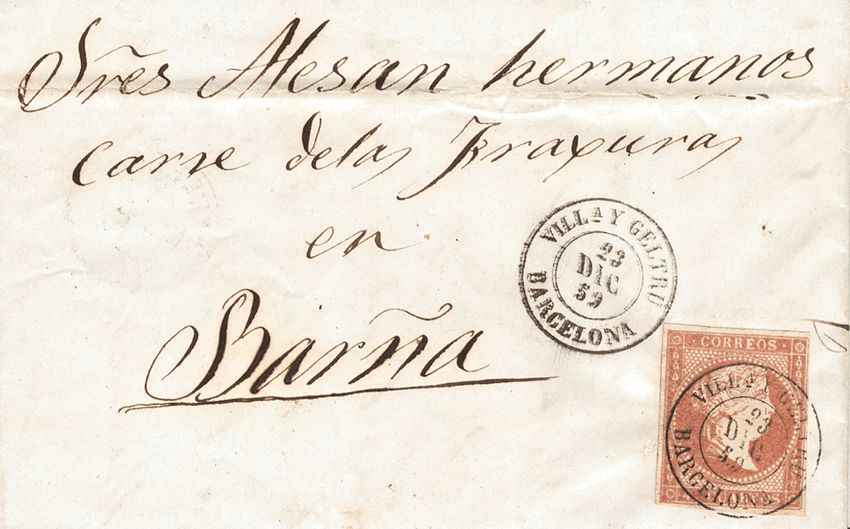 Sr̃es Alesan hermanos
carre delas Fraxuras
en
Barña
VILLA Y GELTRU
23
DIC
59
BARCELONA
CORREOS
VILLA Y GELTRU
23
DIC
59
BARCELONA